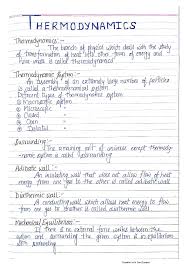 THERMODYNAMICS
Thermodynamics:-
The branch of physics which deals with the study
of transformation of heat into other forms of energy and
vice versa is called thermodynamics.
Thermodynamic System:-
An assembly of an extremely large number of particles
is called a thermodynamic system.
Different Types of thermodynamic system
Microscopic system
Macroscopic
Closed
Open
Isolated
Surrounding:-
The remaining part of universe except thermody-
namic system is called surrounding.
Adiabatic wall:-
An insulating wall that does not allow flow of heat
energy from one to the other is called adiabatic wall.
Diathermic wall:-
A conducting wall which allows heat energy to flow
from one to another is called diathermic wall.
Mechanical Equilibrium:-
If there is no external force works between the
system and the surrounding the given system is in equilibrium